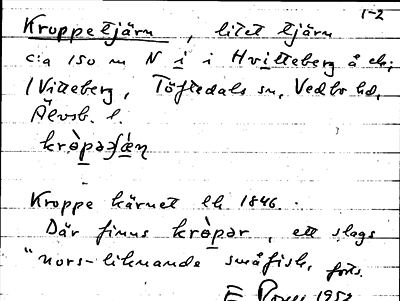 1-2
Kroppetjärn, litet tjärn
c:a 150 m N i i Hvitteberg å ek;
/Vitteberg, Töftedals sn, Vedbo hd,
Älvsb. l.
Kroppe kärnet ek 1846.
Där finns krò̱pər, ett slags
"nors-liknande småfisk, forts.
E 1952